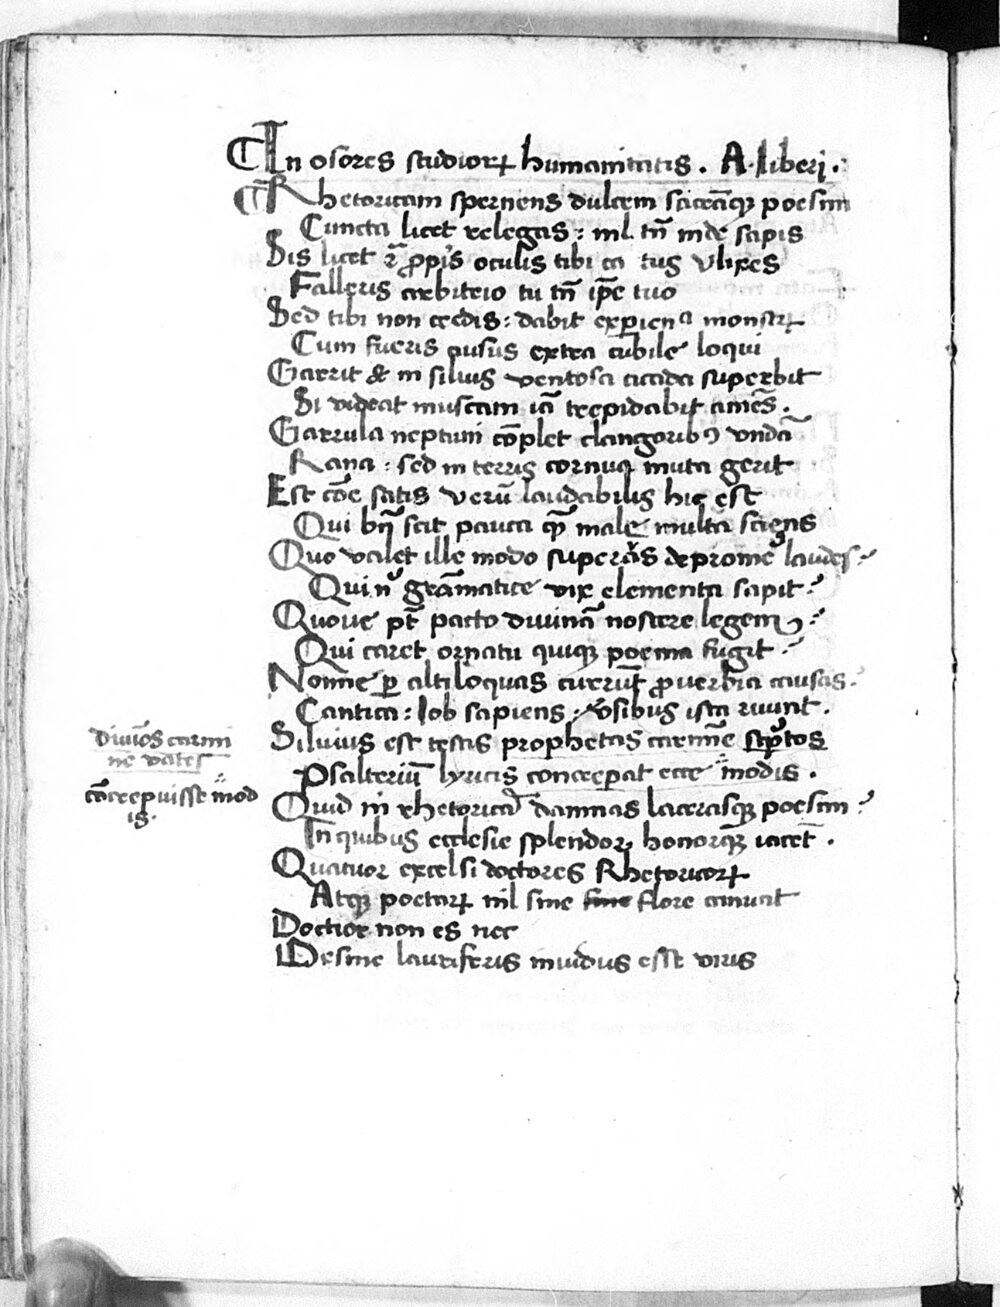 In osores studiorꝝ humanitatis . A. liberi .
Rhetoricam spernens dulcem sacrāqꝫ poesim
Cuncta licet relegas : nil tn̄ inde sapis
Sis licet ꝓpriis oculis tibi tuus Vlixes
Falleris arbitrio tu tn̄ ip̄e tuo
Sed tibi non credis : dabit experien a monstrꝝ
Cum fueris ausus extra cubile loqui
Garrit & in siluis ventosa cicada superbit
Si videat muscam iā trepidabit amēs .
Garrula neptuni cōplet clangoribꝯ vndā
Rana : sed in terris cornuqꝫ muta gerit
Est cōe satis verū laudabilis hic est
Qui bn̄ scit pauca qꝫ male multa sciens
Quo valet ille modo superās depromē laudes ?
Qui n̄ grāmatice vix elementa sapit ?
Quoue pt̄ pacto diuinā noscere legem ?
Qui caret ornatu quiqꝫ poema fugit ?
Nonne ꝑ altiloquas currūt ꝓuerbia causas ?
Cantica : Iob sapiens : vsibus ista ruunt .
Siluius est testis prophetas carmīe scp̄tos
Psalteriū lyricis conceperat ecce modis .
Quid in rhetorica damnas lacerasqꝫ poesim ?
In quibus ecclesie splendor honorqꝫ iacet .
Quatuor excelsi doctores Rhetoricorꝝ
Atqꝫ poetarꝝ nil sine sine flore canunt
Doctior non es nec
Desine lauriferis inuidus esse viris
diuīos carmi
ne vates
cōcepuisse mod
is .